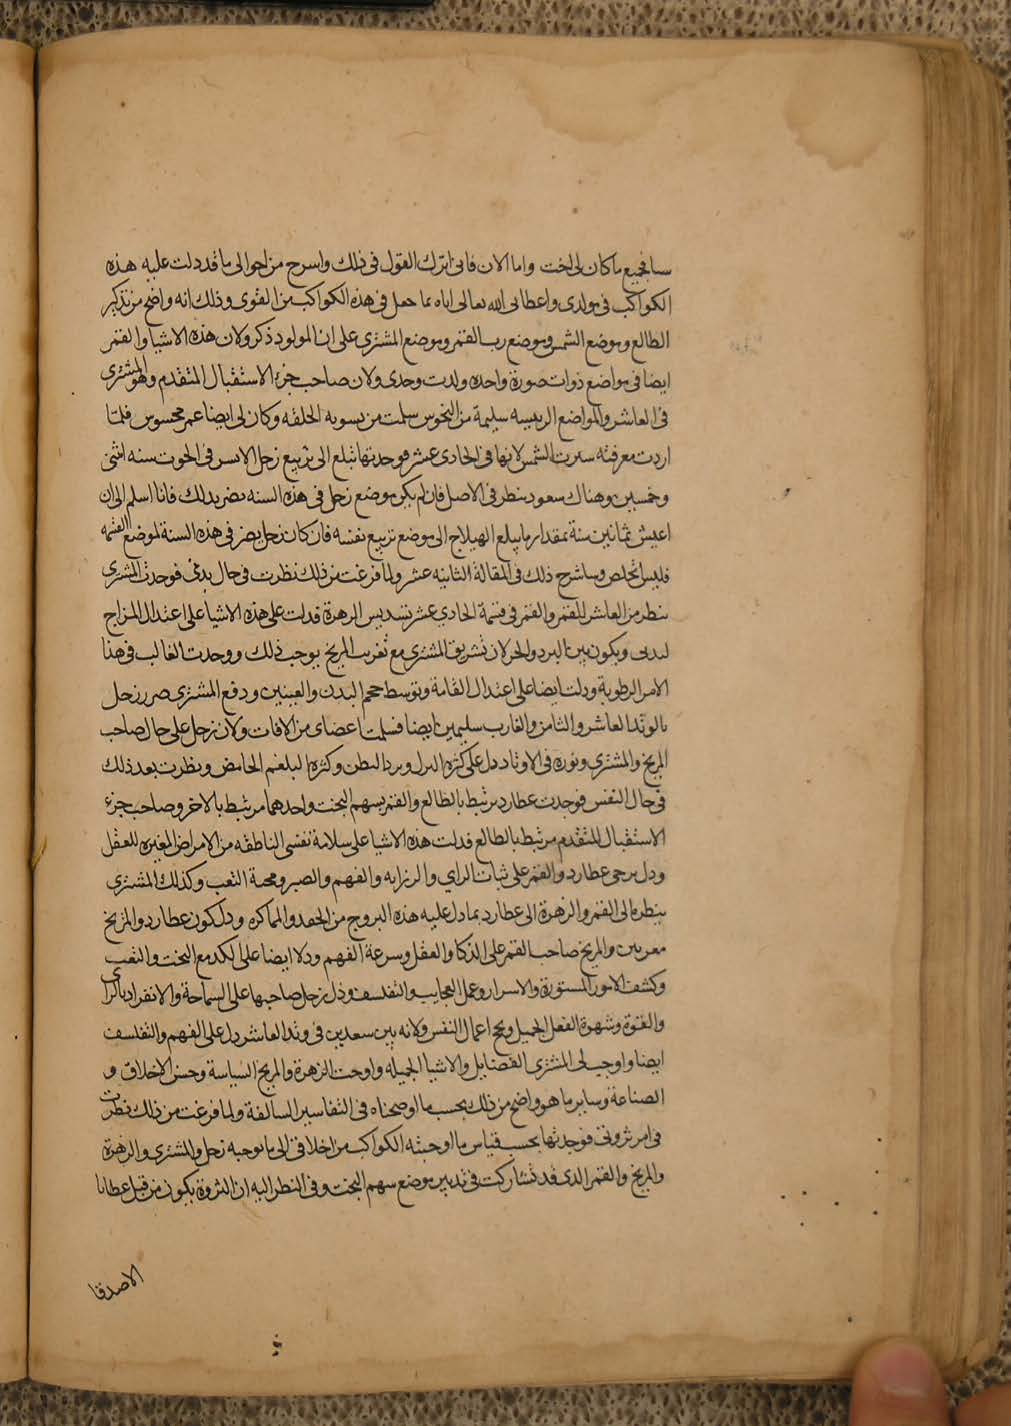 ما كان لى اخت واما الان فانى اترك القول فى ذلك واسرح من احوالى ما قد دلت عليه هذه
الكواكب فى مولدى واعطانى الله تعالى اياه بما جعل فى هذه الكواكب من القوى وذلك انه واضح من تذكير
الطالع وموضع الشمس وموضع رب القمر وموضع المشترى على ان المولود ذكر ولان هذه الاشيا والقمر
ايضا فى مواضع ذوات صورة واحده ولدت وحدى ولان صاحب جزء الاستقبال المتقدم وهو المشترى
فى العاشر والمواضع الرييسه سليمة من النحوس سلمت من تسويه الخلقه وكان لى ايضا عمر محسوس فلما
اردت معرفته سيرت الشمس لانها فى الحادى عشر فوجدتها تبلغ الى تربيع زحل الايسر فى الحوت سنه اثنى
وخمسين وهناك سعود ينظر فى الاصل فان لم يكن موضع زحل فى هذه السنه يضر بذلك فانا اسلم الى ان
اعيش ثمانين سنة بمقدار ما يبلغ الهيلاج الى موضع تربيع نفسه فان كان زحل يضر فى هذه السنة لموضع القسمه
فليس اتخلص وساشرح ذلك فى المقالة الثانيه عشر ولما فرغت من ذلك نظرت فى حال بدنى فوجدت المشترى
ينظر من العاشر للقمر والقمر فى قسمة الحادى عشر بتسديس الزهرة فدلت على هذه الاشيا على اعتدال المزاج
لبدنى ويكون بين البرد والحر لان تشريق المشترى مع تغريب المريخ يوجب ذلك ووجدت الغالب فى هذا
الامر الرطوبة ودلت ايضا على اعتدال القامة وتوسط حجم البدن والعينين ودفع المشترى ضرر زحل
بالوتد العاشر والثامن والغارب سليمين ايضا فسلمت اعضاى من الافات ولان زحل على حال صاحب
المريخ والمشترى ونوره فى الاوتاد دل على كثرة النزل وبرد البطن وكثره البلغم الحامض ونظرت بعد ذلك
فى حال النفس فوجدت عطارد مرتبط بالطالع والقمر بسهم البخت واحدهما مرتبط بالاخر وصاحب جزء
الاستقبال المتقدم مرتبط بالطالع فدلت هذه الاشيا على سلامة نفسى الناطقه من الامراض المغيره للعقل
ودل برجى عطارد والقمر على ثبات الراى والرزانه والفهم والصبر ومحبة التعب وكذلك المشترى
ينظره الى القمر والزهرة الى عطارد بما دل عليه هذه البروج من الحقد والمماكره ودل كون عطارد والمريخ
مغربين والمريخ صاحب القمر على الذكا والعقل وسرعة الفهم ودلا ايضا على الكد مع البخت والتعب
وكشف الامور المستورة والاسرار وعمل العجايب والتفلسف ودل زحل صاحبها على السماحة والانفراد بالراى
والقوة وشهرة الفعل الجميل ونجح اعمال النفس ولانه بين سعدين فى وتد العاشر دل على الفهم والتفلسف
ايضا واوجب لى المشترى الفضايل والاشيا الجميله واوجبت الزهرة والمريخ السياسة وحسن الاخلاق و
الصناعة وساير ما هو واضح من ذلك بحسب ما اوضحناه فى التفاسير السالفة ولما فرغت من ذلك نظرت
فى امر ثروتى فوجدتها بحسب قياس ما اوجبته الكواكب من اخلاقى الى ما توجبه زحل والمشترى والزهرة
والمريخ والقمر الذى قد تشاركت فى تدبير موضع سهم البخت وفى النظر اليه ان الثروة يكون من قبل عطايا
الاصدقا